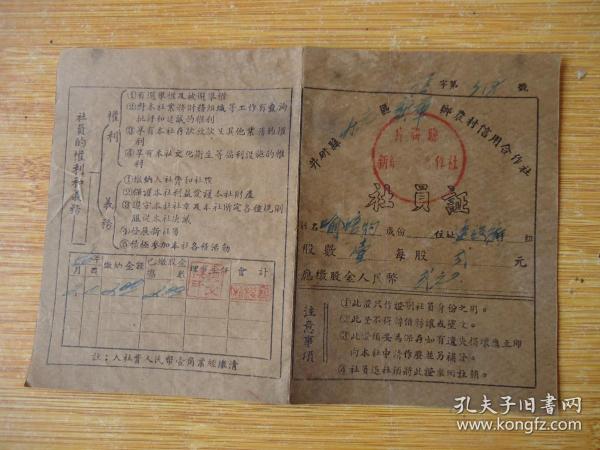 字第 号
井研縣 區 鄉農村信用合作社
井研縣
新 作社
社員証
姓名 成份 住址
股數 壹 每股 貳 元
應繳股金人民幣 貳元
注意事項
①此證只作證明社員身份之用。
②此登不得轉借轉讓或塗改。
③此證須妥為保存如有遺失損壞應立即
向本社申請作廢並另補發。
④社員退社須將此證繳回社銷。
社員的權利和義務
權利
①有選舉權及被選舉權
②對本社業務財務組織等工作有查詢
批評和建議的權利
③享有本社存款放款及其他業務的權
利
④享有本社文化衛生等福利設施的權
利
義務
①繳納入社費和社股
②保護本社利益愛護本社財產
③遵守本社社章及本社所定各種規則
服從本社決議
④發展新社員
⑤積極參加本社各種活動
年
月 日 繳納金額 已繳股金數 理事主任 會計
註：入社費人民幣壹角業經繳清
孔夫子旧书网
www.kongfz.com